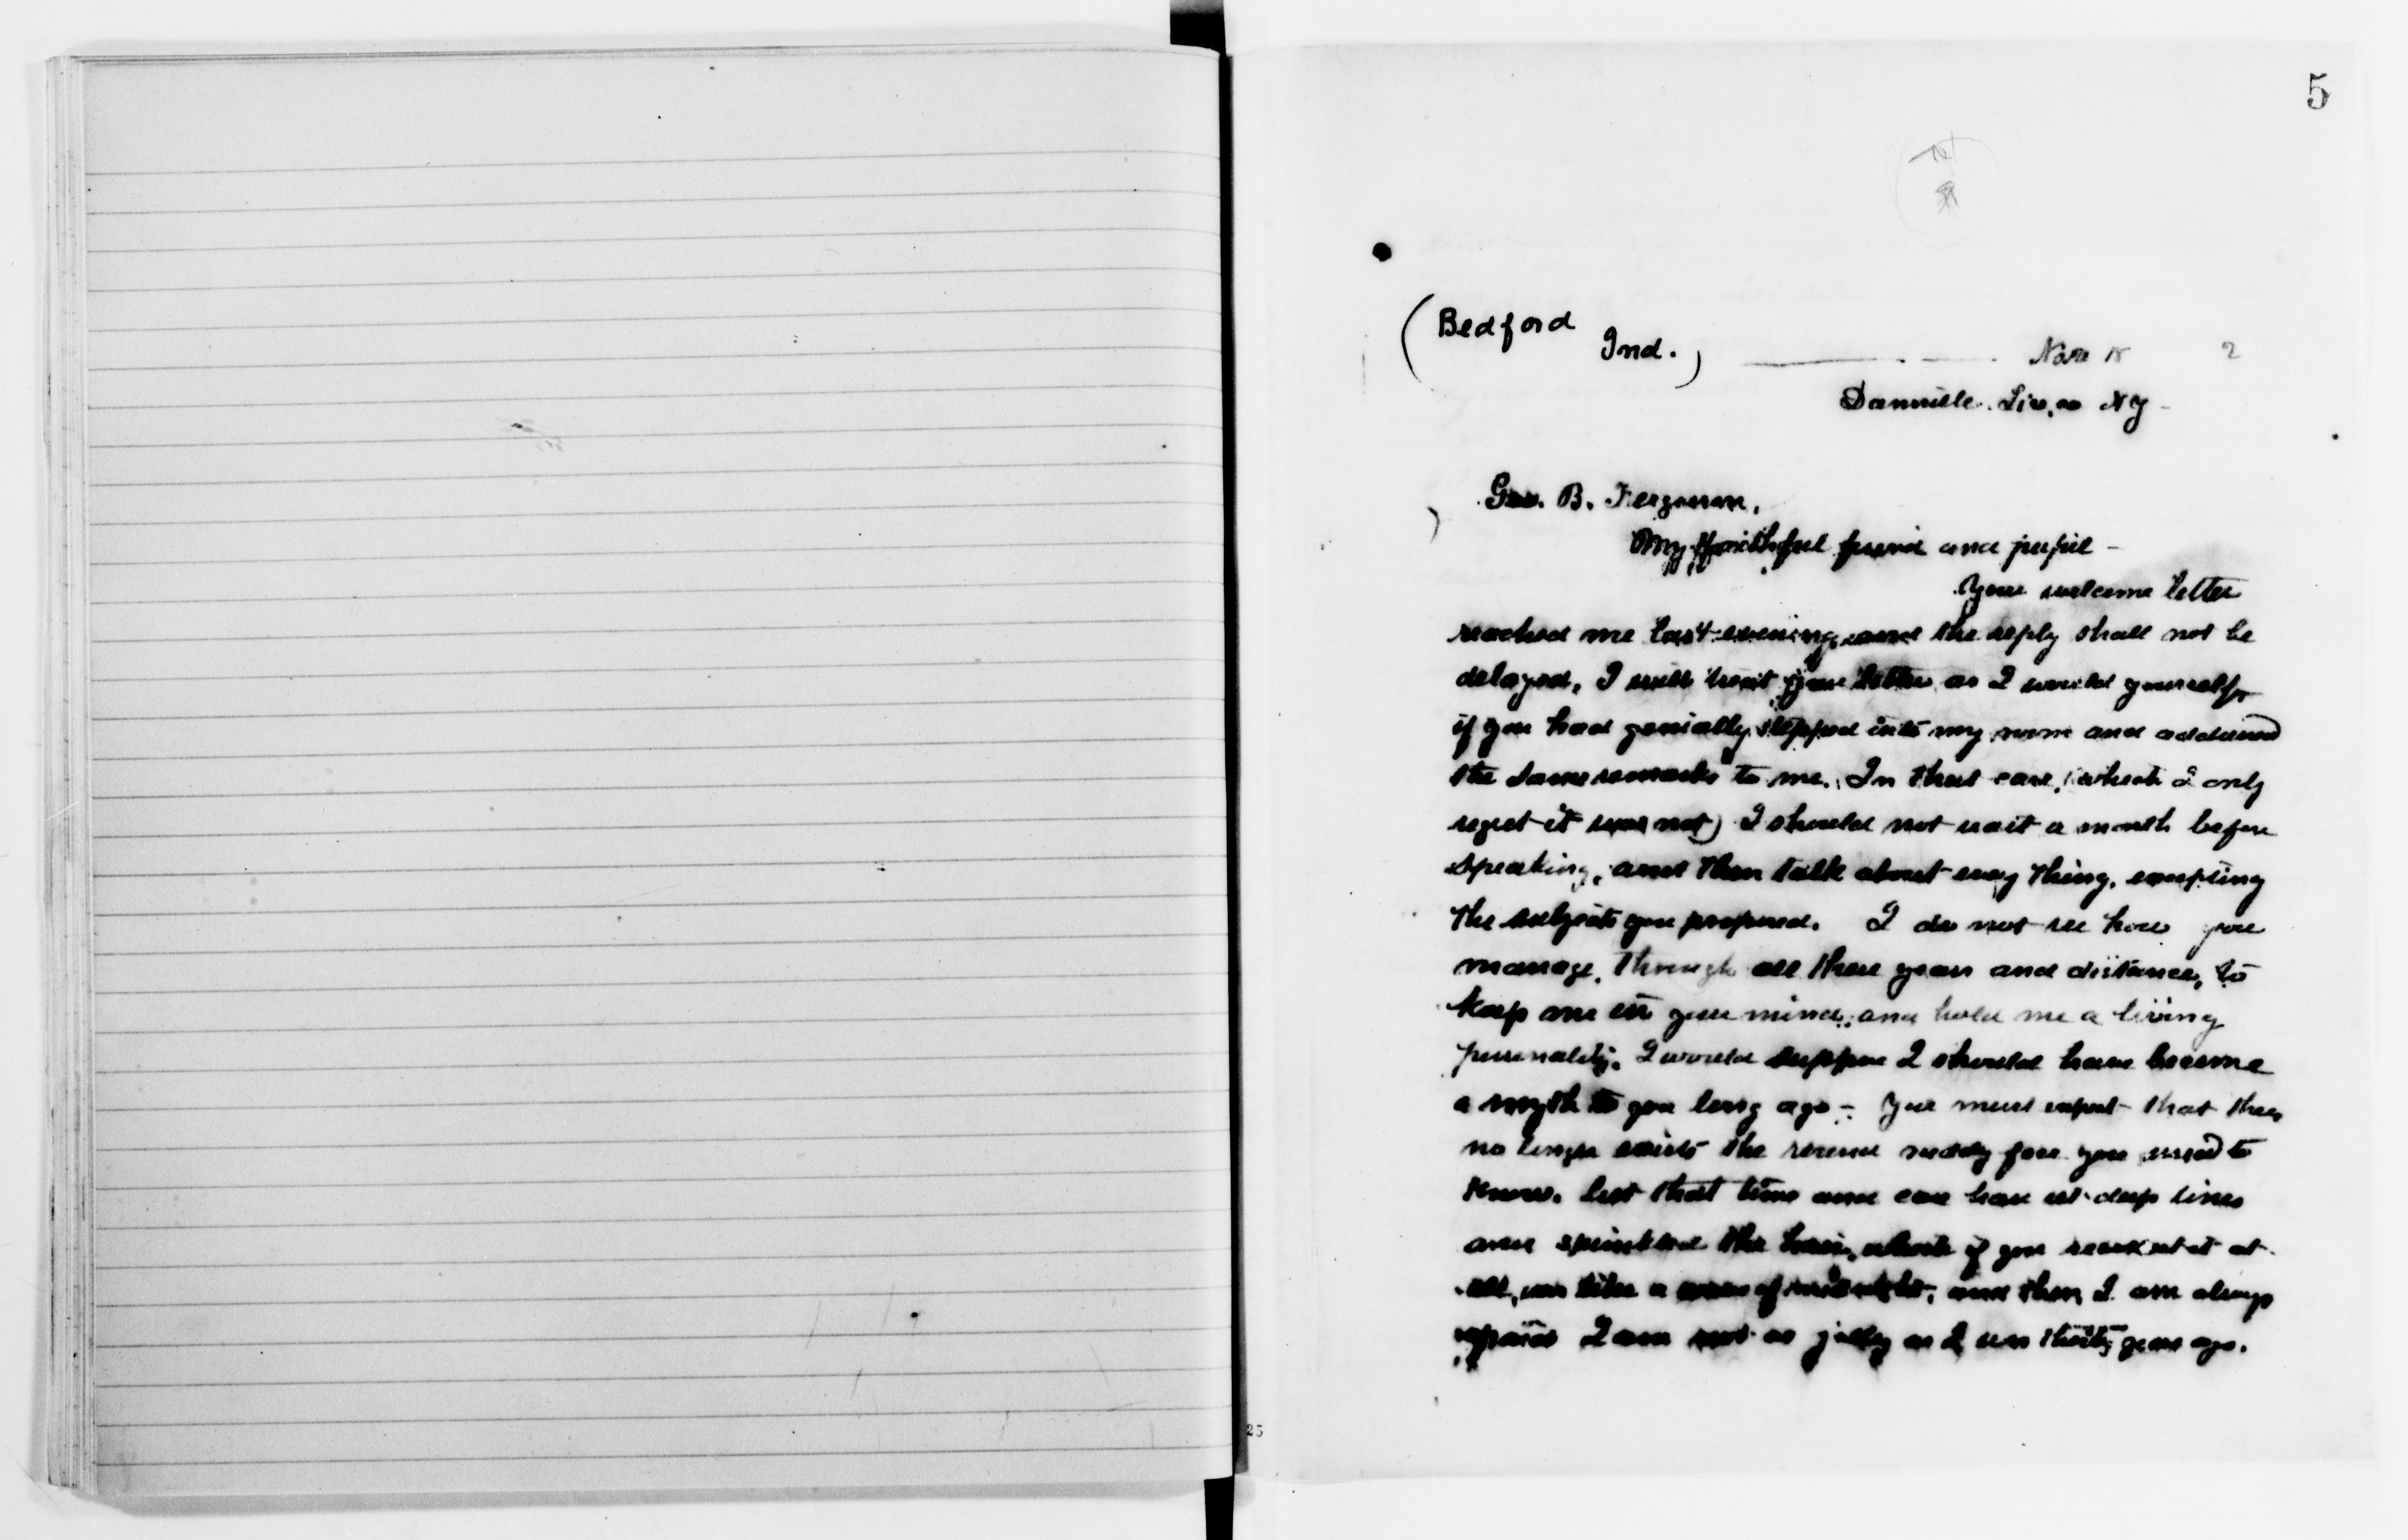 5
(Bedford
Ind.)
Dansville. Liv. co NY -
Geo. B. Ferguson,
My faithful friend and pupil -
Your welcome letter
reached me last evening, and the reply shall not be
delayed, I will treat your letter as I would yourself,
if you had genially stepped into my room and addressed
the same remarks to me. In that case, (which I only
regret it was not) I should not wait a month before
speaking, and then talk about every thing, excepting
the subjects you proposed. I do not see how you
manage, through all these years and distances, to
keep me in your mind, and hold me a living
personality. I would suppose I should have become
a myth to you long ago - You must expect that there
no longer exists the round ruddy face you used to
know, but that time and care have set deep lines
and sprinkled the hair, which if you recollect it at
all, was like a of midnight, and then, I am always
I am not as jolly as I was thirty years ago.
25